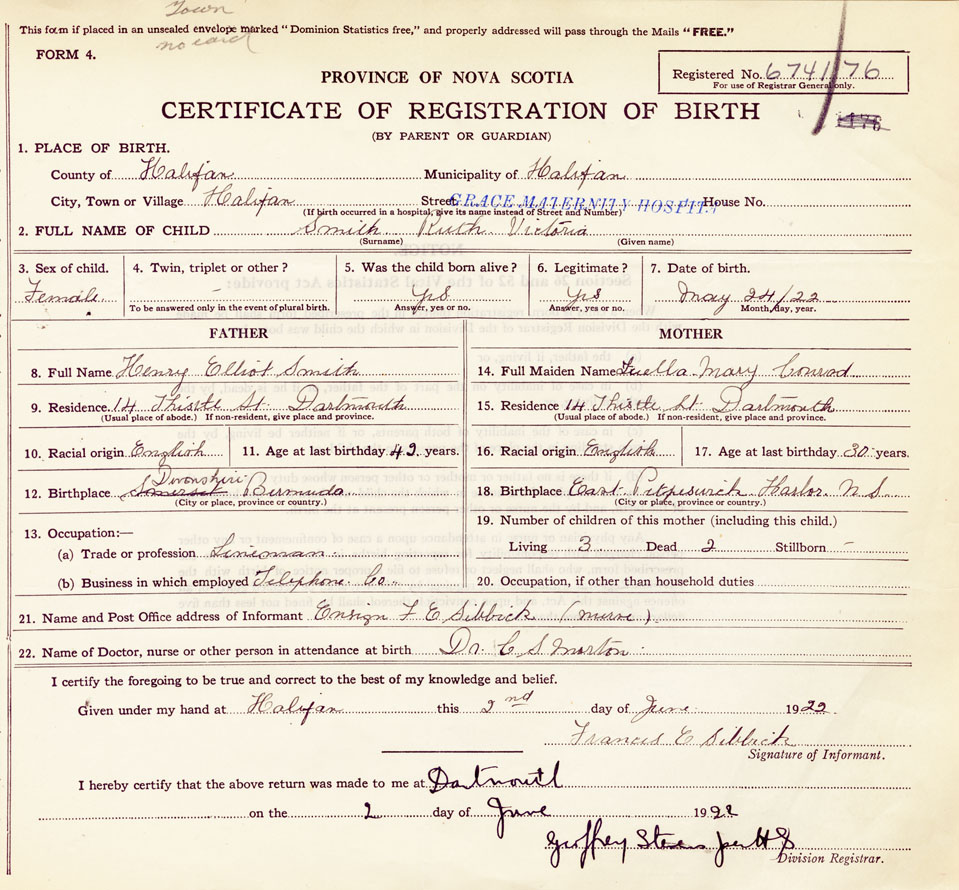 Town
This form if placed in an unsealed envelope marked "Dominion Statistics free," and properly addressed will pass through the Mails "FREE."
no card
FORM 4.
Registered No. 6741/76
For use of Registrar General only.
PROVINCE OF NOVA SCOTIA
CERTIFICATE OF REGISTRATION OF BIRTH
(BY PARENT OR GUARDIAN)
1. PLACE OF BIRTH.
County of Halifax Municipality of Halifax
City, Town or Village Halifax Street GRACE MATERNITY HOSPITA House No.
(If birth occurred in a hospital, give its name instead of Street and Number)
2. FULL NAME OF CHILD Smith Ruth Victoria
(Surname) (Given name)
3. Sex of child. 4. Twin, triplet or other? 5. Was the child born alive? 6. Legitimate? 7. Date of birth.
Female. - Yes Yes May 24/22
To be answered only in the event of plural birth. Answer, yes or no. Answer, yes or no. Month, day, year.
FATHER MOTHER
8. Full Name Henry Elliot Smith 14. Full Maiden Name Luella Mary Conrad
9. Residence. 14 Thistle St. Dartmouth 15. Residence 14 Thistle St Dartmouth
(Usual place of abode.) If non-resident, give place and province. (Usual place of abode.) If non-resident, give place and province.
10. Racial origin English 11. Age at last birthday 42 years. 16. Racial origin English 17. Age at last birthday 30 years.
Devonshire
12. Birthplace Somerset Bermuda 18. Birthplace East Petpeswick Harbor N S
(City or place, province or country.) (City or place, province or country.)
13. Occupation:— 19. Number of children of this mother (including this child.)
(a) Trade or profession Lineman Living 3 Dead 2 Stillborn -
(b) Business in which employed Telephone Co. 20. Occupation, if other than household duties
21. Name and Post Office address of Informant Ensign F E Sibbick (nurse)
22. Name of Doctor, nurse or other person in attendance at birth Dr. C S Morton
I certify the foregoing to be true and correct to the best of my knowledge and belief.
Given under my hand at Halifax this 2nd day of June 1922
Francis E Sibbick
Signature of Informant.
I hereby certify that the above return was made to me at Dartmouth
on the 2 day of June 1922
Geoffrey Stevens per H S
Division Registrar.